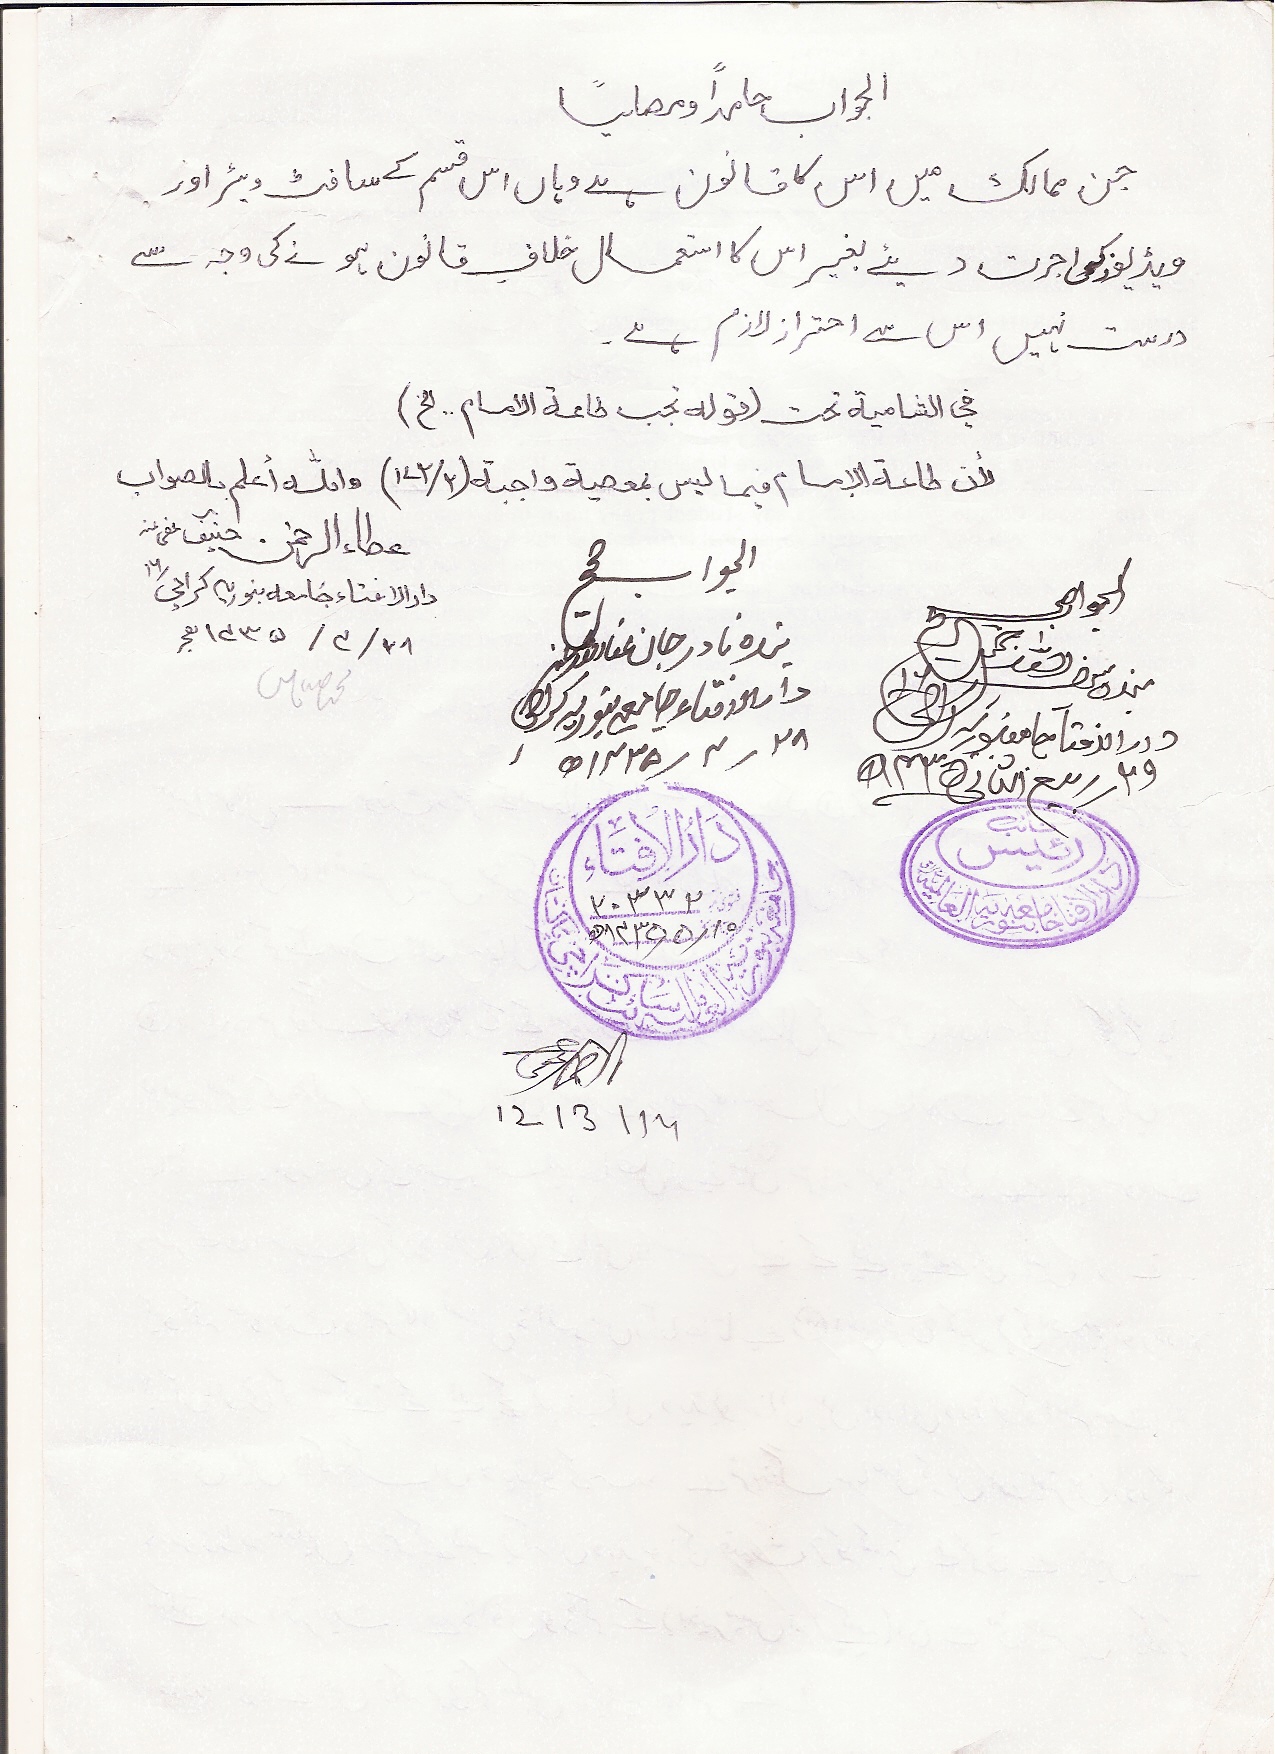 الجواب حامداً ومصلیاً
جن ممالک میں اس کا قانون ہے وہاں اس قسم کے سافٹ ویئر اور
ویڈیوز کی اجرت دیئے بغیر اس کا استعمال خلافِ قانون ہونے کی وجہ سے
درست نہیں اس سے احتراز لازم ہے۔
في الشامية تحت (قوله تجب طاعة الإمام .. الخ)
لأن طاعة الإمام فيما ليس بمعصية واجبة (۱۷۲/۲) والله أعلم بالصواب
عطاء الرحمن حنیف عفی عنہ
دار الافتاء جامعہ بنوریہ کراچی ۱۶
۲۸/۴/۱۴۳۵ھ
الجواب صحیح
بندہ نادر جان
دار الافتاء جامعہ بنوریہ کراچی
۲۸/۴/۱۴۳۵ھ
الجواب صحیح
بندہ
دار الافتاء جامعہ بنوریہ
۲۹ ربیع الثانی
دار الإفتاء
۲۰۳۳۲
جامعہ بنوریہ العالمیہ سائٹ کراچی پاکستان
نائب
رئیس
دار الافتاء جامعہ بنوریہ العالمیہ
12/3/14